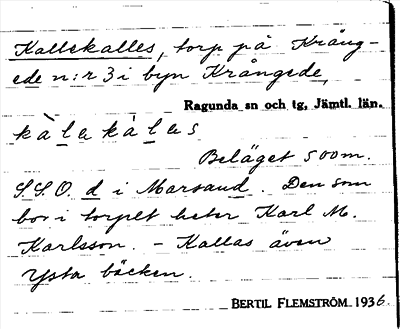 Kallekalles, torp på Krång-
ede n:r 3 i byn Krångede,
Ragunda sn och tg, Jämtl. län.
kàlekàles
Beläget 500m.
S.S.O. d i Marsaud. Den som
bor i torpet heter Karl M.
Karlsson. - Kallas även
Ysta bäcken.
BERTIL FLEMSTRÖM 1936.